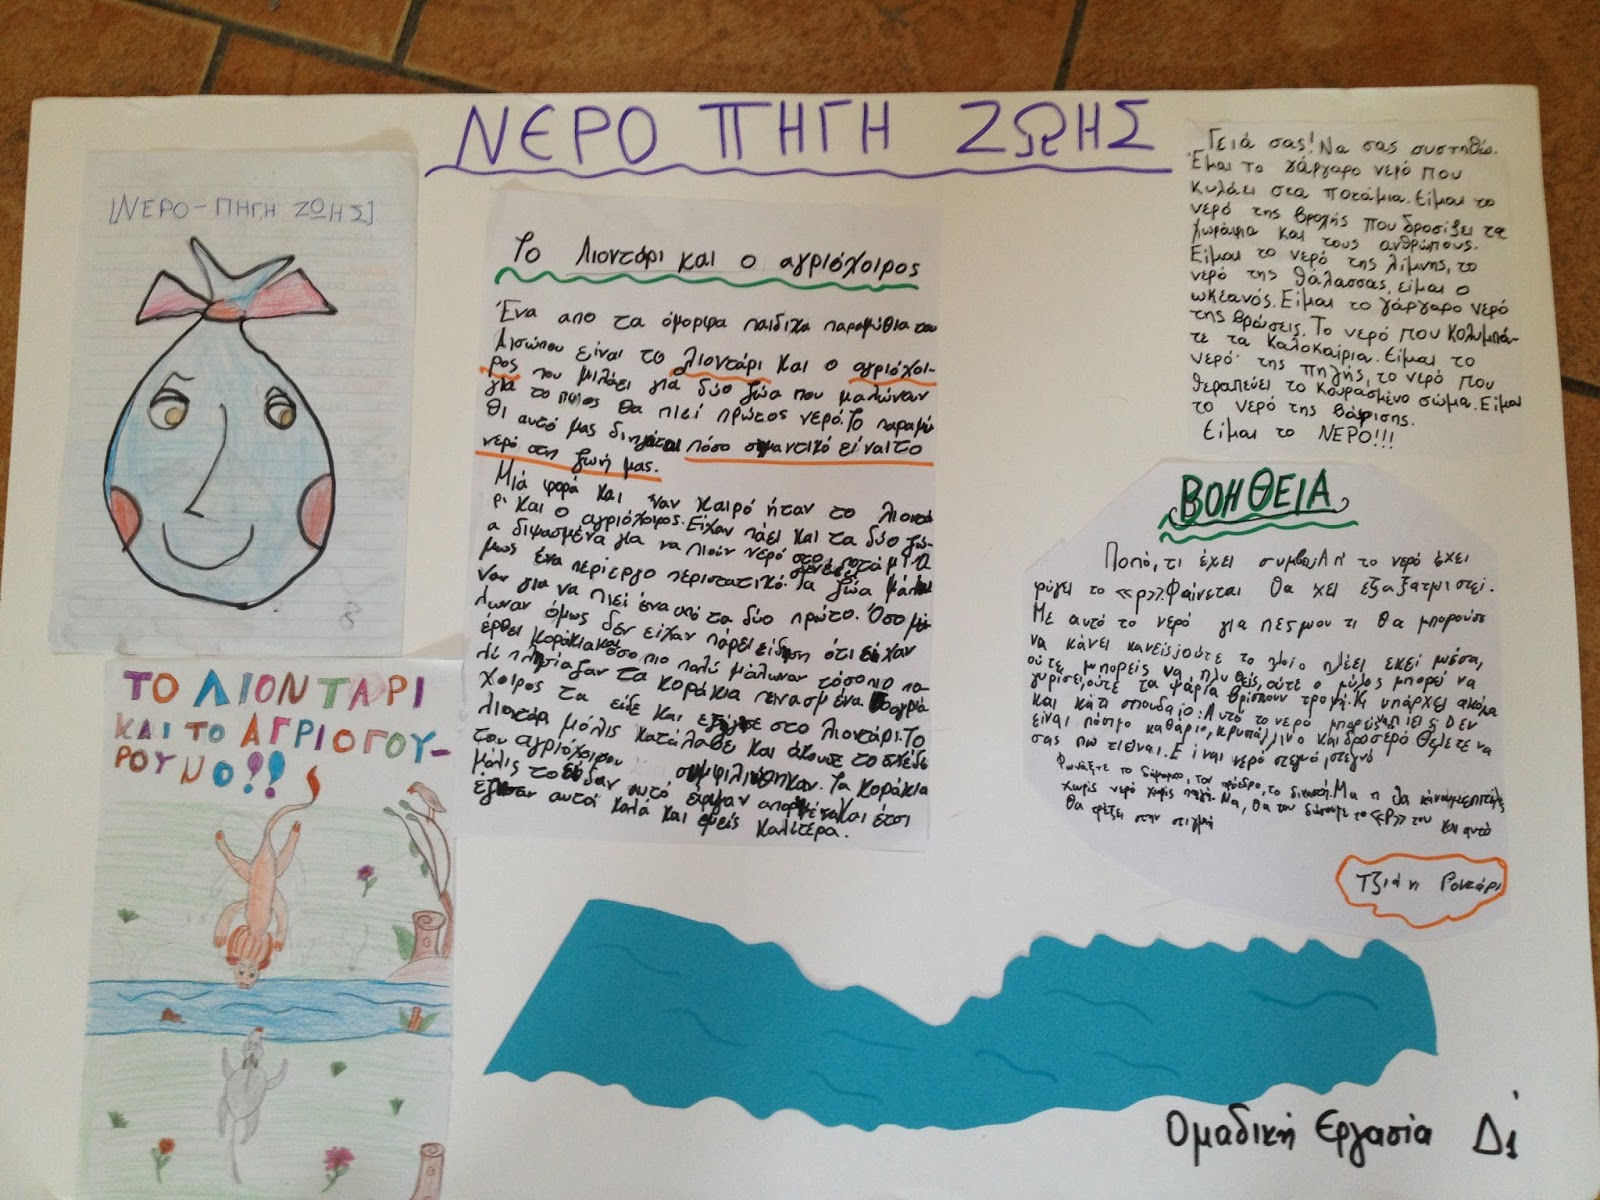 ΝΕΡΟ ΠΗΓΗ ΖΩΗΣ
[ΝΕΡΟ-ΠΗΓΗ ΖΩΗΣ]
ΤΟ ΛΙΟΝΤΑΡΙ
ΚΑΙ ΤΟ ΑΓΡΙΟΓΟΥ-
ΡΟΥΝΟ!!
Το Λιοντάρι και ο αγριόχοιρος
Ένα απο τα όμορφα παιδικα παραμύθια του
Αισώπου είναι το λιοντάρι και ο αγριόχοι-
ρος που μιλάει για δύο ζώα που μαλώναν
για το ποιος θα πιεί πρώτος νερό. Το παραμύ
θι αυτό μας διηγάται πόσο σημαντικό είναι το
νερό στη ζωή μας.
Μιά φορά και έναν καιρό ήταν το λιοντά
ρι και ο αγριόχοιρος. Είχαν πάει και τα δύο ζώ-
α διψασμένα για να πιούν νερό στο ποτάμι.
μως ένα περίεργο περιστατικό. Τα ζώα
ναν για να πιεί ένα από τα δύο πρώτο. Όσο μά
λωναν όμως δεν είχαν πάρει είδηση ότι είχαν
έρθει κοράκια και όσο πιο πολύ μάλωναν τόσο πιο πο-
λύ πλησίαζαν τα κοράκια πεινασμένα. Ο αγριό
χοιρος τα είδε και εξήγησε στο λιοντάρι. Το
λιοντάρι μόλις κατάλαβε και άκουσε το σχέδιο
του αγριόχοιρου συμφιλιώθηκαν. Τα κοράκια
μόλις το είδαν αυτό έφυγαν και έτσι
έζησαν αυτοί καλά και εμείς καλίτερα.
Γειά σας! Να σας συστηθώ.
Είμαι το γάργαρο νερό που
κυλάει στα ποτάμια. Είμαι το
νερό της βροχής που δροσίζει τα
χωράφια και τους ανθρώπους.
Είμαι το νερό της λίμνης, το
νερό της θάλασσας, είμαι ο
ωκεανός. Είμαι το γάργαρο νερό
της βρώσεις. Το νερό που κολυμπά-
τε τα καλοκαίρια. Είμαι το
νερό της πηγής, το νερό που
θεραπεύει το κουρασμένο σώμα. Είμαι
το νερό της βάφισης.
Είμαι το ΝΕΡΟ!!!
ΒΟΗΘΕΙΑ
Ποπό, τι έχει συμβεί; Απ' το νερό έχει
φύγει το «ρ». Φαίνεται θα χει εξαξατμιστεί.
Με αυτό το νερό για πες μου τι θα μπορούσε
να κάνει κανείς; ούτε το πλοίο πλέει εκεί μέσα,
ούτε μπορείς να πλυθείς, ούτε ο μύλος μπορεί να
γυρίσει, ούτε τα ψάρια βρίσκουν τροφή. Κι υπάρχει ακόμα
και κάτι σπουδαίο: Αυτό το νερό μπορείς να πιεις; Δεν
είναι πόσιμο καθάριο, κρυστάλλινο και δροσερό. Θέλετε να
σας πω τι είναι. Είναι νερό στεγνό, στεγνό
Φωνάξτε το δήμαρχο, τον πρόεδρο, το δικαστή. Μα τι θα κάνουμε επιτέλους
χωρίς νερό χωρίς πηγή. Να, θα του δώσουμε το «Ρ» του και αυτό
θα τρέξει στην στιγμή
Τζιάνι Ροντάρι
Ομαδική Εργασία Δ1'